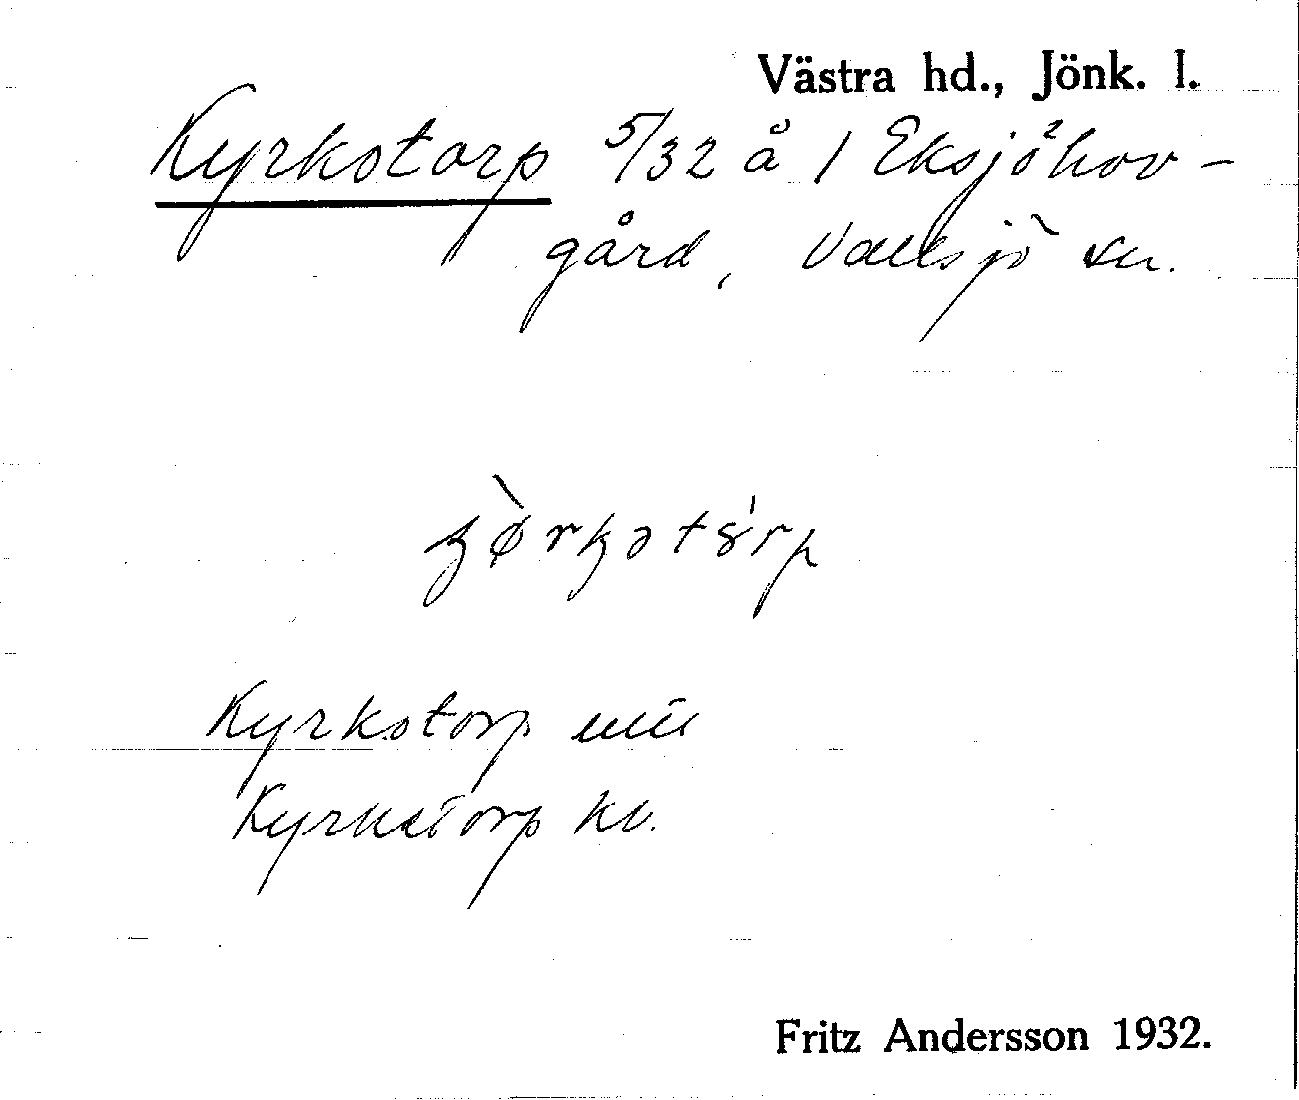 Västra hd., Jönk. l.
Kyrkotorp 5/32 å 1 Eksjöhov-
gård, Vallsjö sn.
Kyrkotorp
Kyrkatorp kb.
Fritz Andersson 1932.